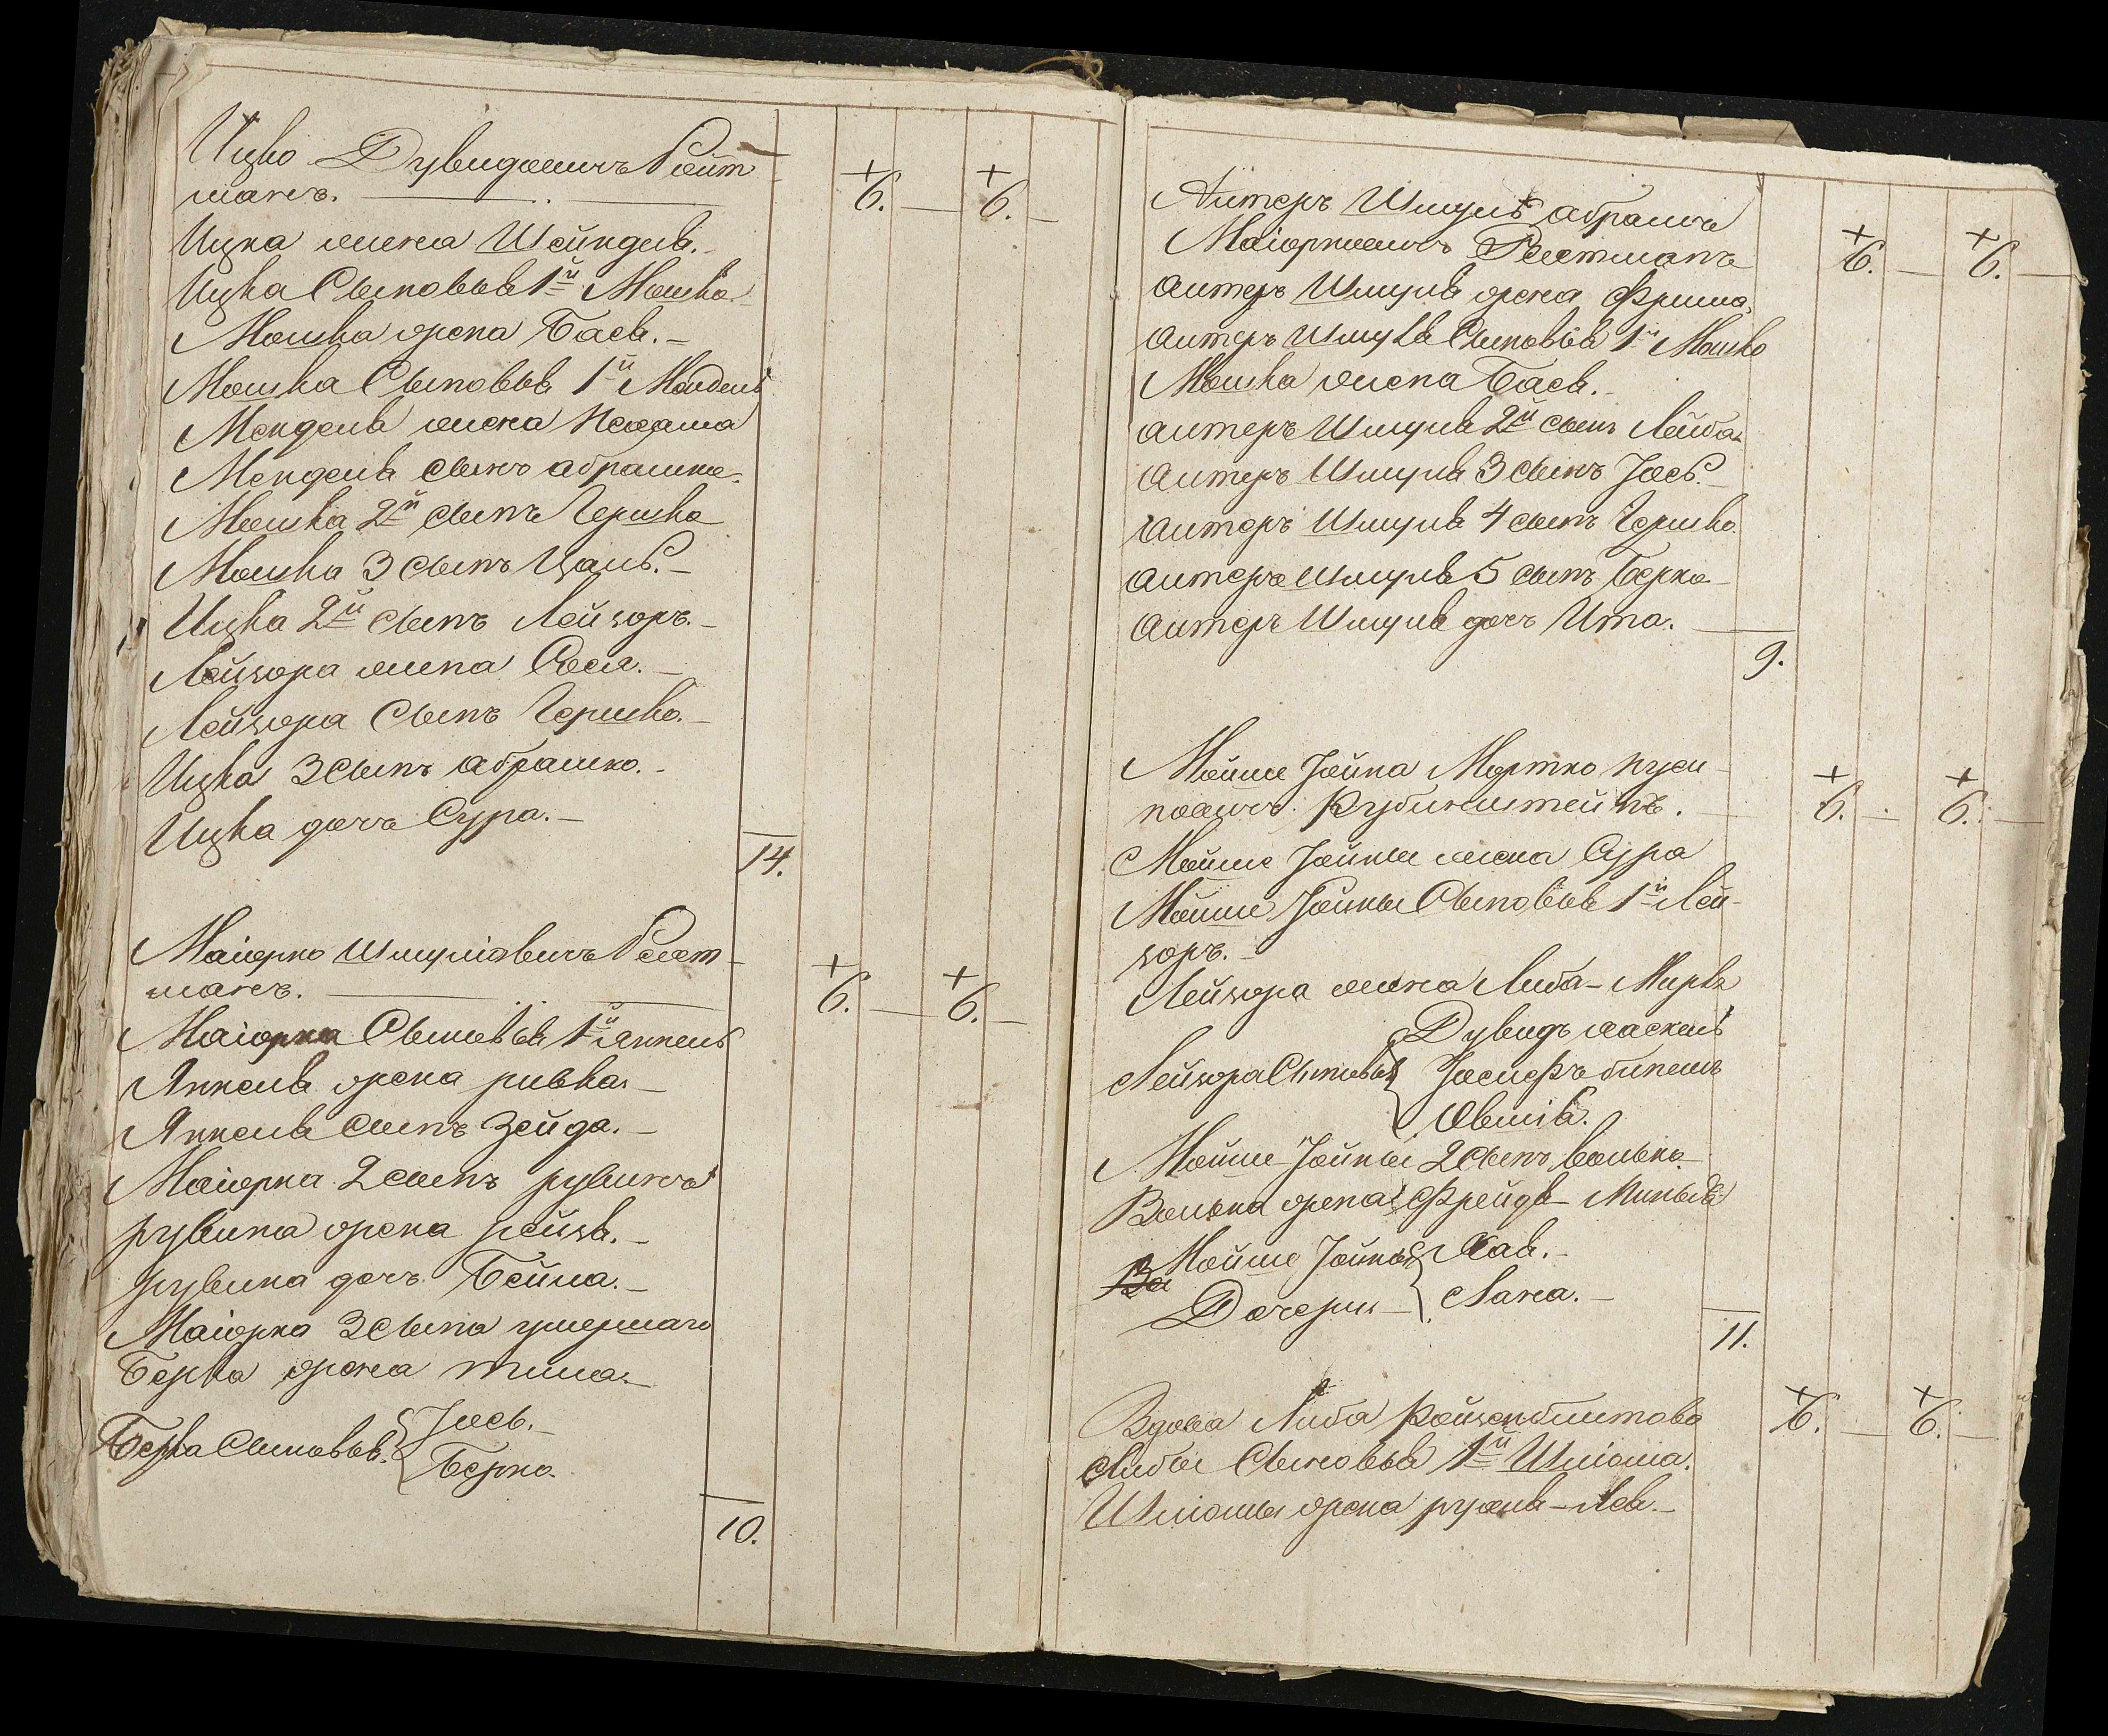 Ицко Дувидовичъ Роит-
манъ. + 6. + 6.
Ицка жена Шейндль.
Ицка Сыновья 1й Мошко
Мошка жена Бася.
Мошка Сыновья 1й Мендель
Менделя жена Нехама
Менделя сынъ абрамко.
Мошка 2й сынъ Гершко
Мошка 3 сынъ Цаль.
Ицка 2й сынъ Лейзоръ.
Лейзора жена Сося.
Лейзора Сынъ Гершко.
Ицка 3 сынъ абрамко.
Ицка дочь Сура.
14.
Маіорко Шмуліовичъ Роит-
манъ. + 6. + 6.
Маіорка Сыновья 1й Янкель
Янкеля жена ривка
Янкеля Сынъ Зейда.
Маіорка 2 сынъ рувинъ
рувина жена рейзя.
рувина дочь Бейла.
Маіорка 3 сына умершаго
Берка жена
Берка Сыновья Іось.
Берко.
10.
Антеръ Шмуль абрамъ
Маіорковичъ Ройтманъ + 6. + 6.
антеръ Шмуля жена Фрима.
антеръ Шмуля Сыновья 1й Мошко
Мошка жена Бася.
антеръ Шмуля 2й сынъ Лейба
антеръ Шмуля 3 сынъ Іось.
антеръ Шмуля 4 сынъ Гершко.
антеръ Шмуля 5 сынъ Берко
антеръ Шмуля дочь Ита.
9.
Мойше Іойна Мортко Нуси-
новичъ Рубинштейнъ. + 6. + 6.
Мойше Іойны жена Сура
Мойше Іойны Сыновья 1й Лей-
зоръ.
Лейзора жена Либа-Мирля
Дувидъ хаскель
Лейзора Сыновья Іосифъ бинемъ
Овшія.
Мойше Іойны 2 Сынъ Волько.
Волька жена Фрейда Минъля
Мойше Іойны Хая.
Дочери Хана.
11.
Вдова Либа Ройзенблитова + 6. + 6.
Либы Сыновья 1й Шліома.
Шліомы жена рухля-Лея.